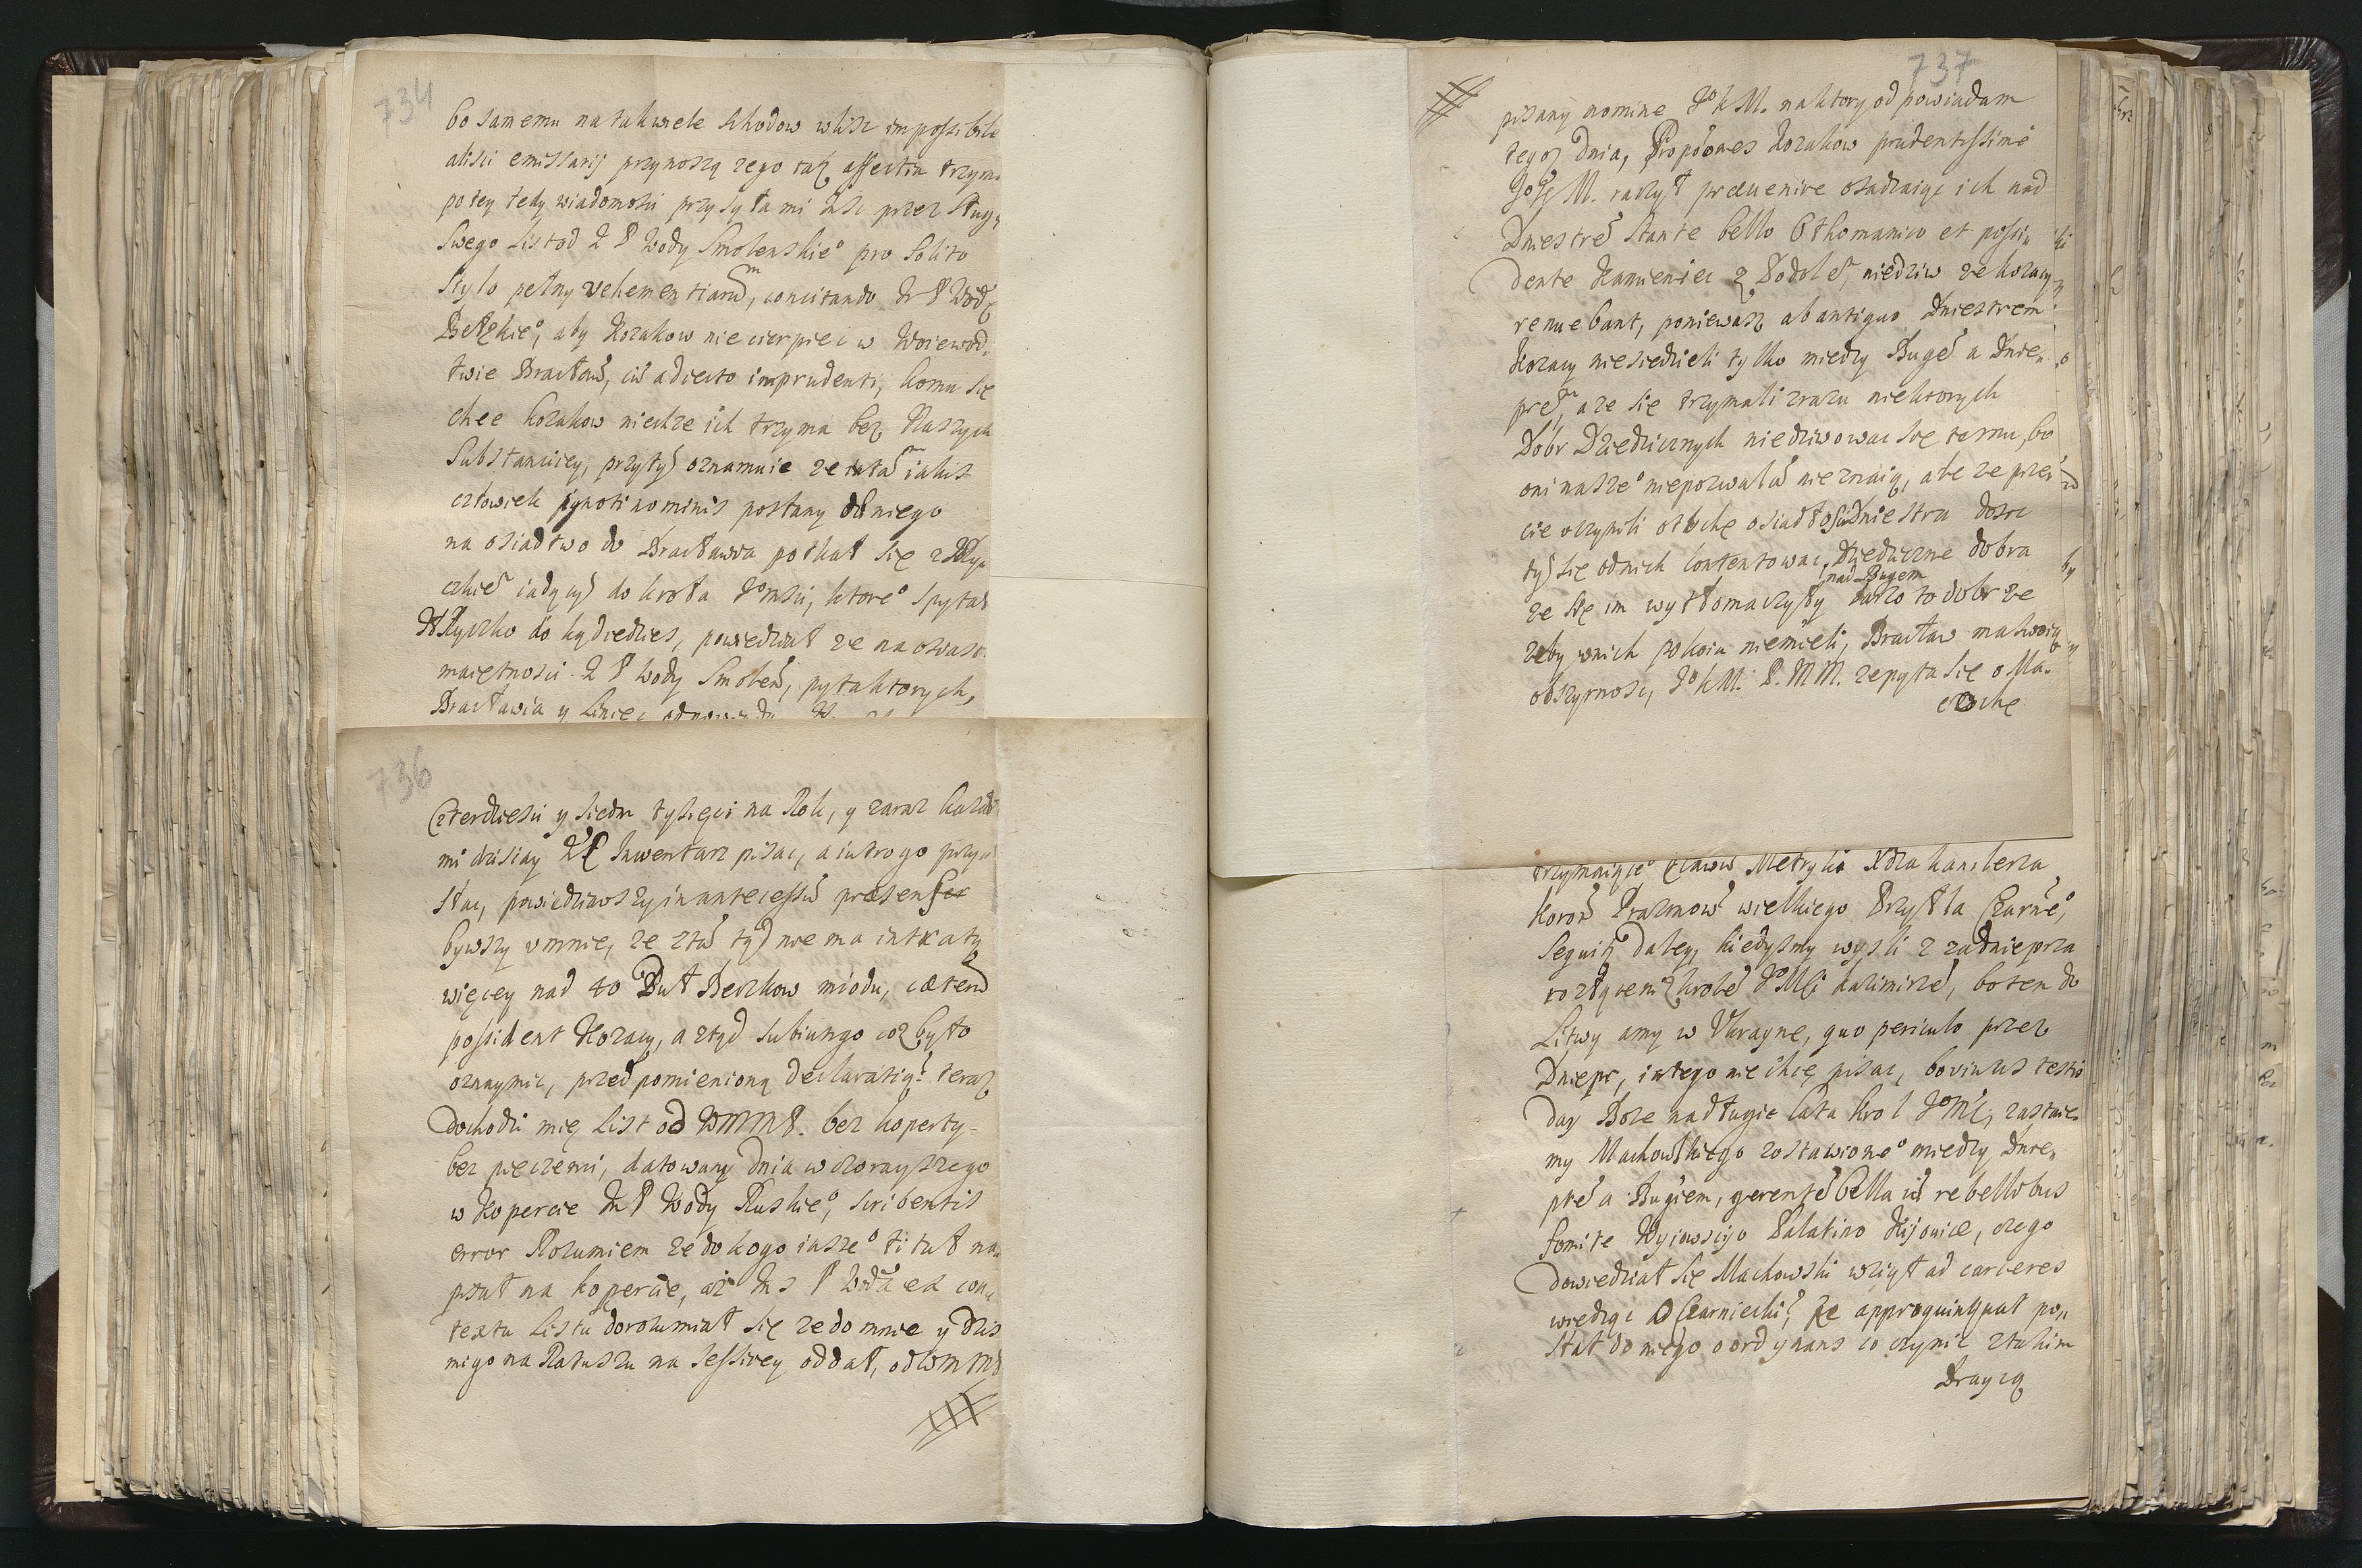 734
bo samemu na tak wiele schodow wlisc impossibile
alisci emissarij przynoszą zego tak affectia trzyma
potey tedy wiadomosci przysyła mi Jmsc przez Sługę
Swego List od J P Wody Smolenskie° pro Solito
Stylo pełny vehementiarum, concitando J P Wodę
Bełzkie°, aby Kozakow nie cierpiec w Woiewodz
twie Bracław, cum adiecto imprudenti, komu się
chce kozakow niechze ich trzyma bez Naszych
Substanciey, przytym oznamuie ze iakas iakis
człowiek ignoti nominis posłany od niego
na osiadtwo do Bracławia potkał się z
iadący do krola Jomsci, ktore° spytał
dokąd iedzies, powiedział ze na
maiętnosci J P Wody Smolen, pyta ktorych,
Bracławia y
736
Czterdziesci y siedm tysięci na Rok, y zaraz kazał
mi dzisiay Inwentarz pisac, a iutro go przy
słac, powiedziawszy in antecessum praesen
bywszy v mnie, ze ztam tyd nie ma intraty
więcey nad 40 Puł Beczkow miodu, caeterum
possident Kozacy, a ztyd subiungo coz było
oznaymic, przed pomienioną declaratią? teraz
dochodzi mię List od WMMP. bez koperty
bez pieczenci, datowany Dnia wczorayszego
w kopercie J P Wody Ruskie°, scribentis
error Rozumiem ze do kogo insze° tituł na
psał na kopercie, P Woda ex con
textu Listu dorozumiał się ze do mnie y dzis
mi go na Ratuszu na sessiey oddał, od WMM
737
pisany nomine Jo K M. na ktory odpowiadam
tegoz Dnia, Propo°nes Kozakow prudentissime
Jo K M. raczył praeuenire osadzaiąc ich nad
Dniestrem Stante bello Othomanico et possi
dente Kamieniec z Podolem, niedziw ze kozacy
renuebant, poniewasz ab antiquo Dniestrem
Kozacy nie siedzieli tylko miedzy Bugiem a Dnie
prem, a ze się trzymali zrazu niektorych
Dobr Dziedzicznych niedziwowac się temu, bo
oni nasze° niepozwalam nie znaią, ale ze prze
cie uczynili otuchę osiadłosci Dniestra dosc
tym się od nich contentowac, Dziedziczne dobra
nad Bugem
ze się im wytłomaczyły barzo to dobrze
zeby wnich pokoiu niemieli, Bracław ma swoią
obszyrnosc, Jo K M. P. M M. ze pyta się o Ma
czochę
trzymaiące° Metryki Xdza kanclerza
Koron Prazmow wielkiego Przyszła Czarne°,
Sequitur daley, kiedysmy wyszli z zadnieprza
rozłączeni z krolem Jo Msci Kazimirzem, bo ten do
Litwy a my w Vkrayne, quo periculo przez
Dniepr, ia tego nie chcę pisac, bo viuus testis
day Boze na długie lata krol Jo Mc, zastaie
my Machowskiego zostawione° miedzy Dnie
prem a Bugiem, gerentem bella cum rebellibus
fomite Wyiowscijo Palatino Kijouiae, czego
dowiedział się Machowski wziął ad carceres
wiedząc o Czarnieckim ze appropinquat po
słał do niego o ordynans co czynic z takim
Zraycą